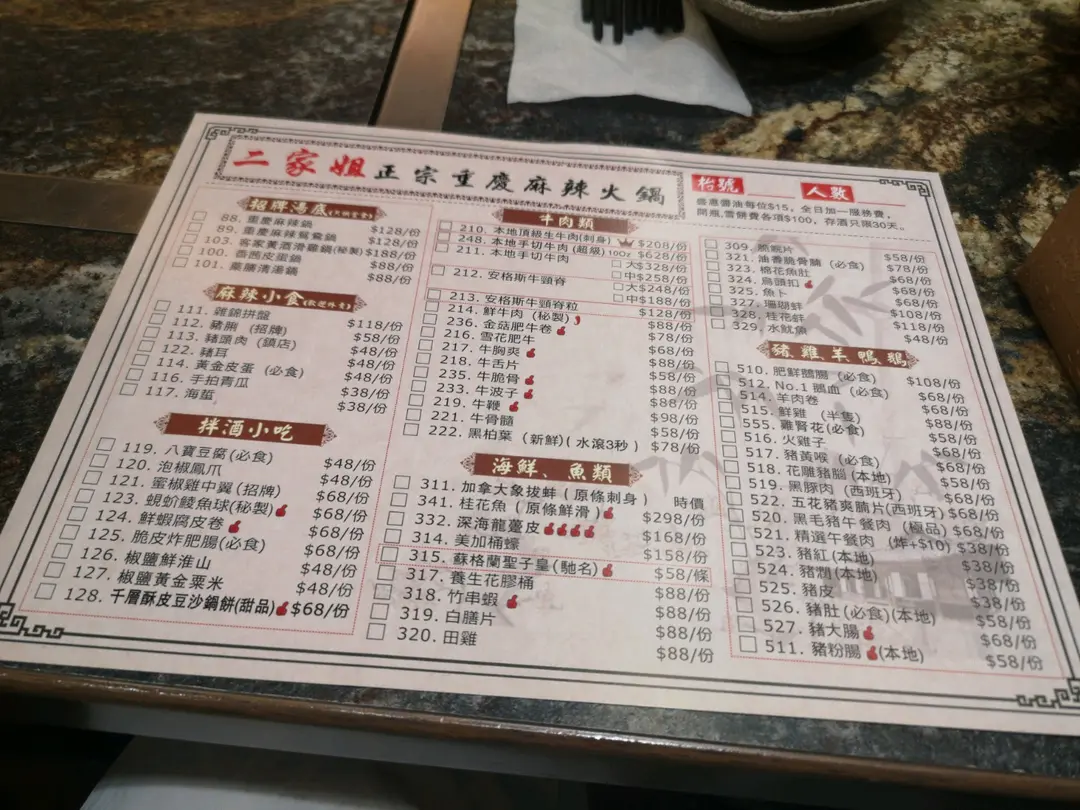 二家姐正宗重慶麻辣火鍋
枱號 人數
盛惠醬油每位$15，全日加一服務費，
開瓶,雪餅費各項$100，存酒只限30天。
招牌湯底
88. 重慶麻辣鍋 $128/份
89. 重慶麻辣鴛鴦鍋 $128/份
103. 客家黃酒滑雞鍋(秘製) $188/份
100. 香茜皮蛋鍋 $88/份
101. 藥膳清湯鍋 $88/份
麻辣小食(歡迎外賣)
111. 雜錦拼盤 $118/份
112. 豬脷 (招牌) $58/份
113. 豬頭肉 (鎮店) $48/份
122. 豬耳 $48/份
114. 黃金皮蛋 (必食) $48/份
116. 手拍青瓜 $38/份
117. 海蜇 $38/份
拌酒小吃
119. 八寶豆腐(必食) $48/份
120. 泡椒鳳爪 $48/份
121. 蜜椒雞中翼(招牌) $68/份
123. 蜆蚧鯪魚球(秘製) $68/份
124. 鮮蝦腐皮卷 $68/份
125. 脆皮炸肥腸(必食) $68/份
126. 椒鹽鮮淮山 $48/份
127. 椒鹽黃金粟米 $48/份
128. 千層酥皮豆沙鍋餅(甜品) $68/份
牛肉類
210. 本地頂級生牛肉(刺身) $208/份
248. 本地手切牛肉(超級) 10oz $628/份
211. 本地手切牛肉 大$328/份
中$258/份
212. 安格斯牛頸脊 大$248/份
中$188/份
213. 安格斯牛頸脊粒 $128/份
214. 鮮牛肉 (秘製) $88/份
236. 金菇肥牛卷 $78/份
216. 雪花肥牛 $68/份
217. 牛胸爽 $88/份
218. 牛舌片 $58/份
235. 牛脆骨 $88/份
233. 牛波子 $88/份
219. 牛鞭 $98/份
221. 牛骨髓 $58/份
222. 黑柏葉 (新鮮)(水滾3秒) $78/份
海鮮、魚類
311. 加拿大象拔蚌(原條刺身) 時價
341. 桂花魚(原條鮮滑) $298/份
332. 深海龍躉皮 $168/份
314. 美加桶蠔 $158/份
315. 蘇格蘭聖子皇(馳名) $58/條
317. 養生花膠桶 $88/份
318. 竹串蝦 $88/份
319. 白膳片 $88/份
320. 田雞 $88/份
309. 脆鯇片 $58/份
321. 油香脆骨腩 (必食) $78/份
323. 棉花魚肚 $68/份
324. 鳥頭扣 $68/份
325. 魚卜 $68/份
327. 珊瑚蚌 $108/份
328. 桂花蚌 $118/份
329. 水魷魚 $48/份
豬、雞、羊、鴨、鵝
510. 肥鮮鵝腸(必食) $108/份
512. No.1 鴨血 (必食) $68/份
514. 羊肉卷 $88/份
515. 鮮雞 (半隻) $88/份
555. 雞腎花(必食) $58/份
516. 火雞子 $68/份
517. 豬黃喉 (必食) $68/份
518. 花雕豬腦 (本地) $58/份
519. 黑豚肉 (西班牙) $68/份
522. 五花豬爽腩片(西班牙) $68/份
520. 黑毛豬午餐肉 (極品) $68/份
521. 精選午餐肉 (炸+$10) $38/份
523. 豬紅(本地) $38/份
524. 豬潤(本地) $38/份
525. 豬皮 $38/份
526. 豬肚(必食)(本地) $58/份
527. 豬大腸 $68/份
511. 豬粉腸 (本地) $58/份